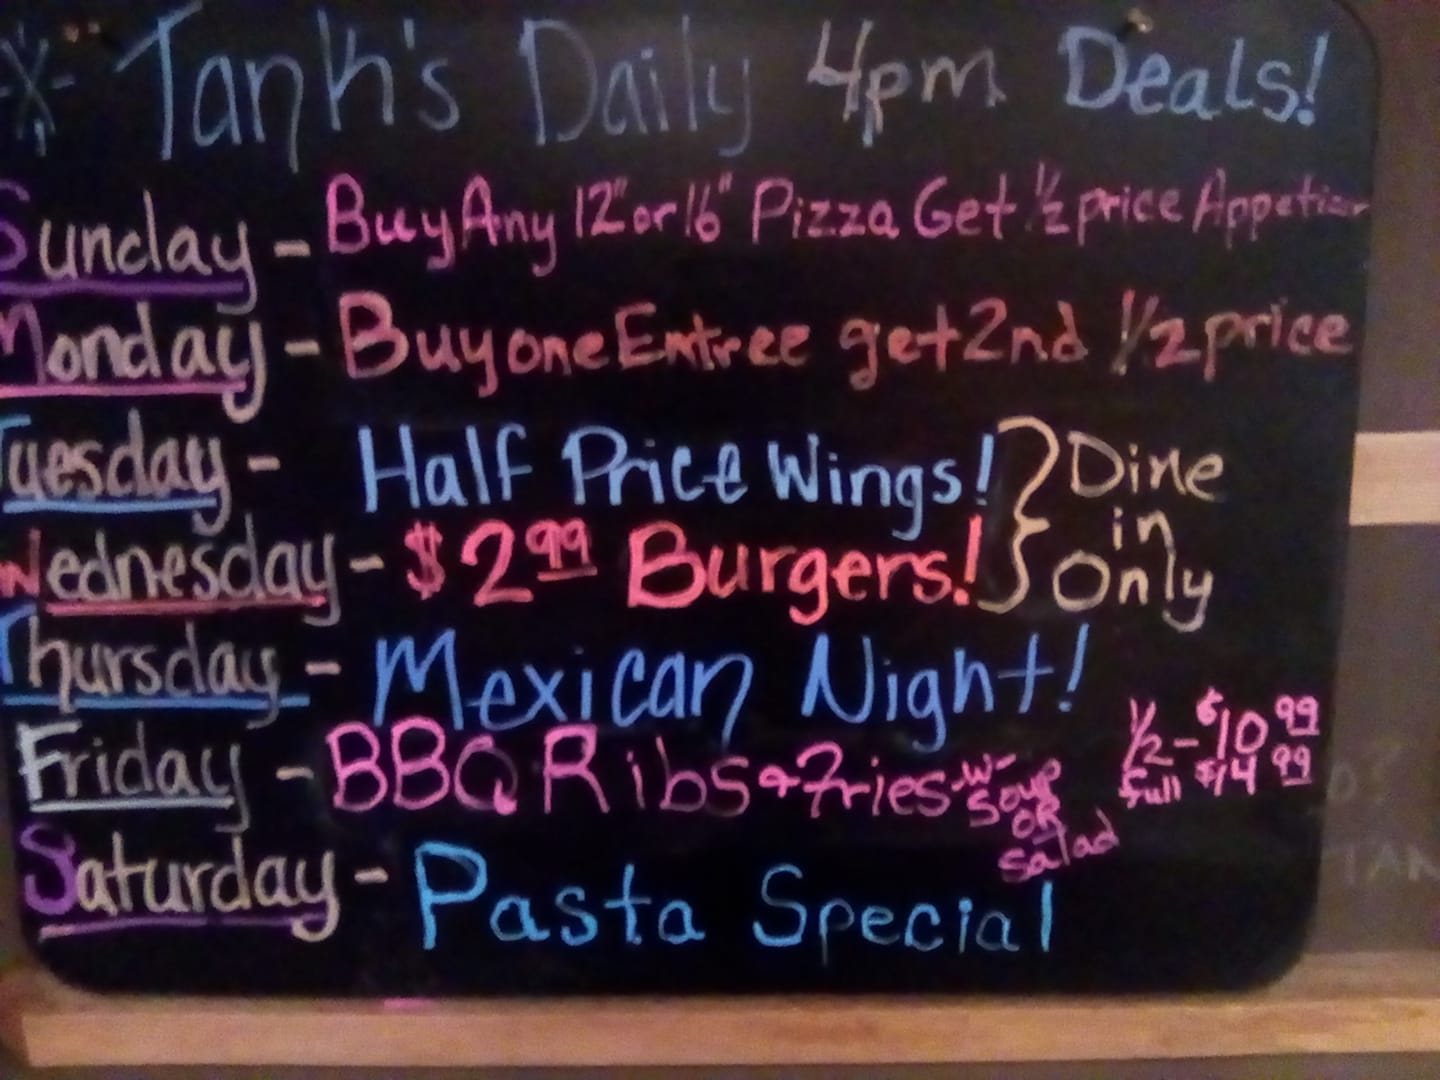 Tank's Daily 4pm Deals!
Sunday - Buy Any 12" or 16" Pizza Get 1/2 price Appetizer
Monday - Buy one Entree get 2nd 1/2 price
Tuesday - Half Price Wings! } Dine
in
Wednesday - $2.99 Burgers! } Only
Thursday - Mexican Night!
Friday - BBQ Ribs & Fries w- Soup OR Salad
1/2 - $10.99
Full $14.99
Saturday - Pasta Special